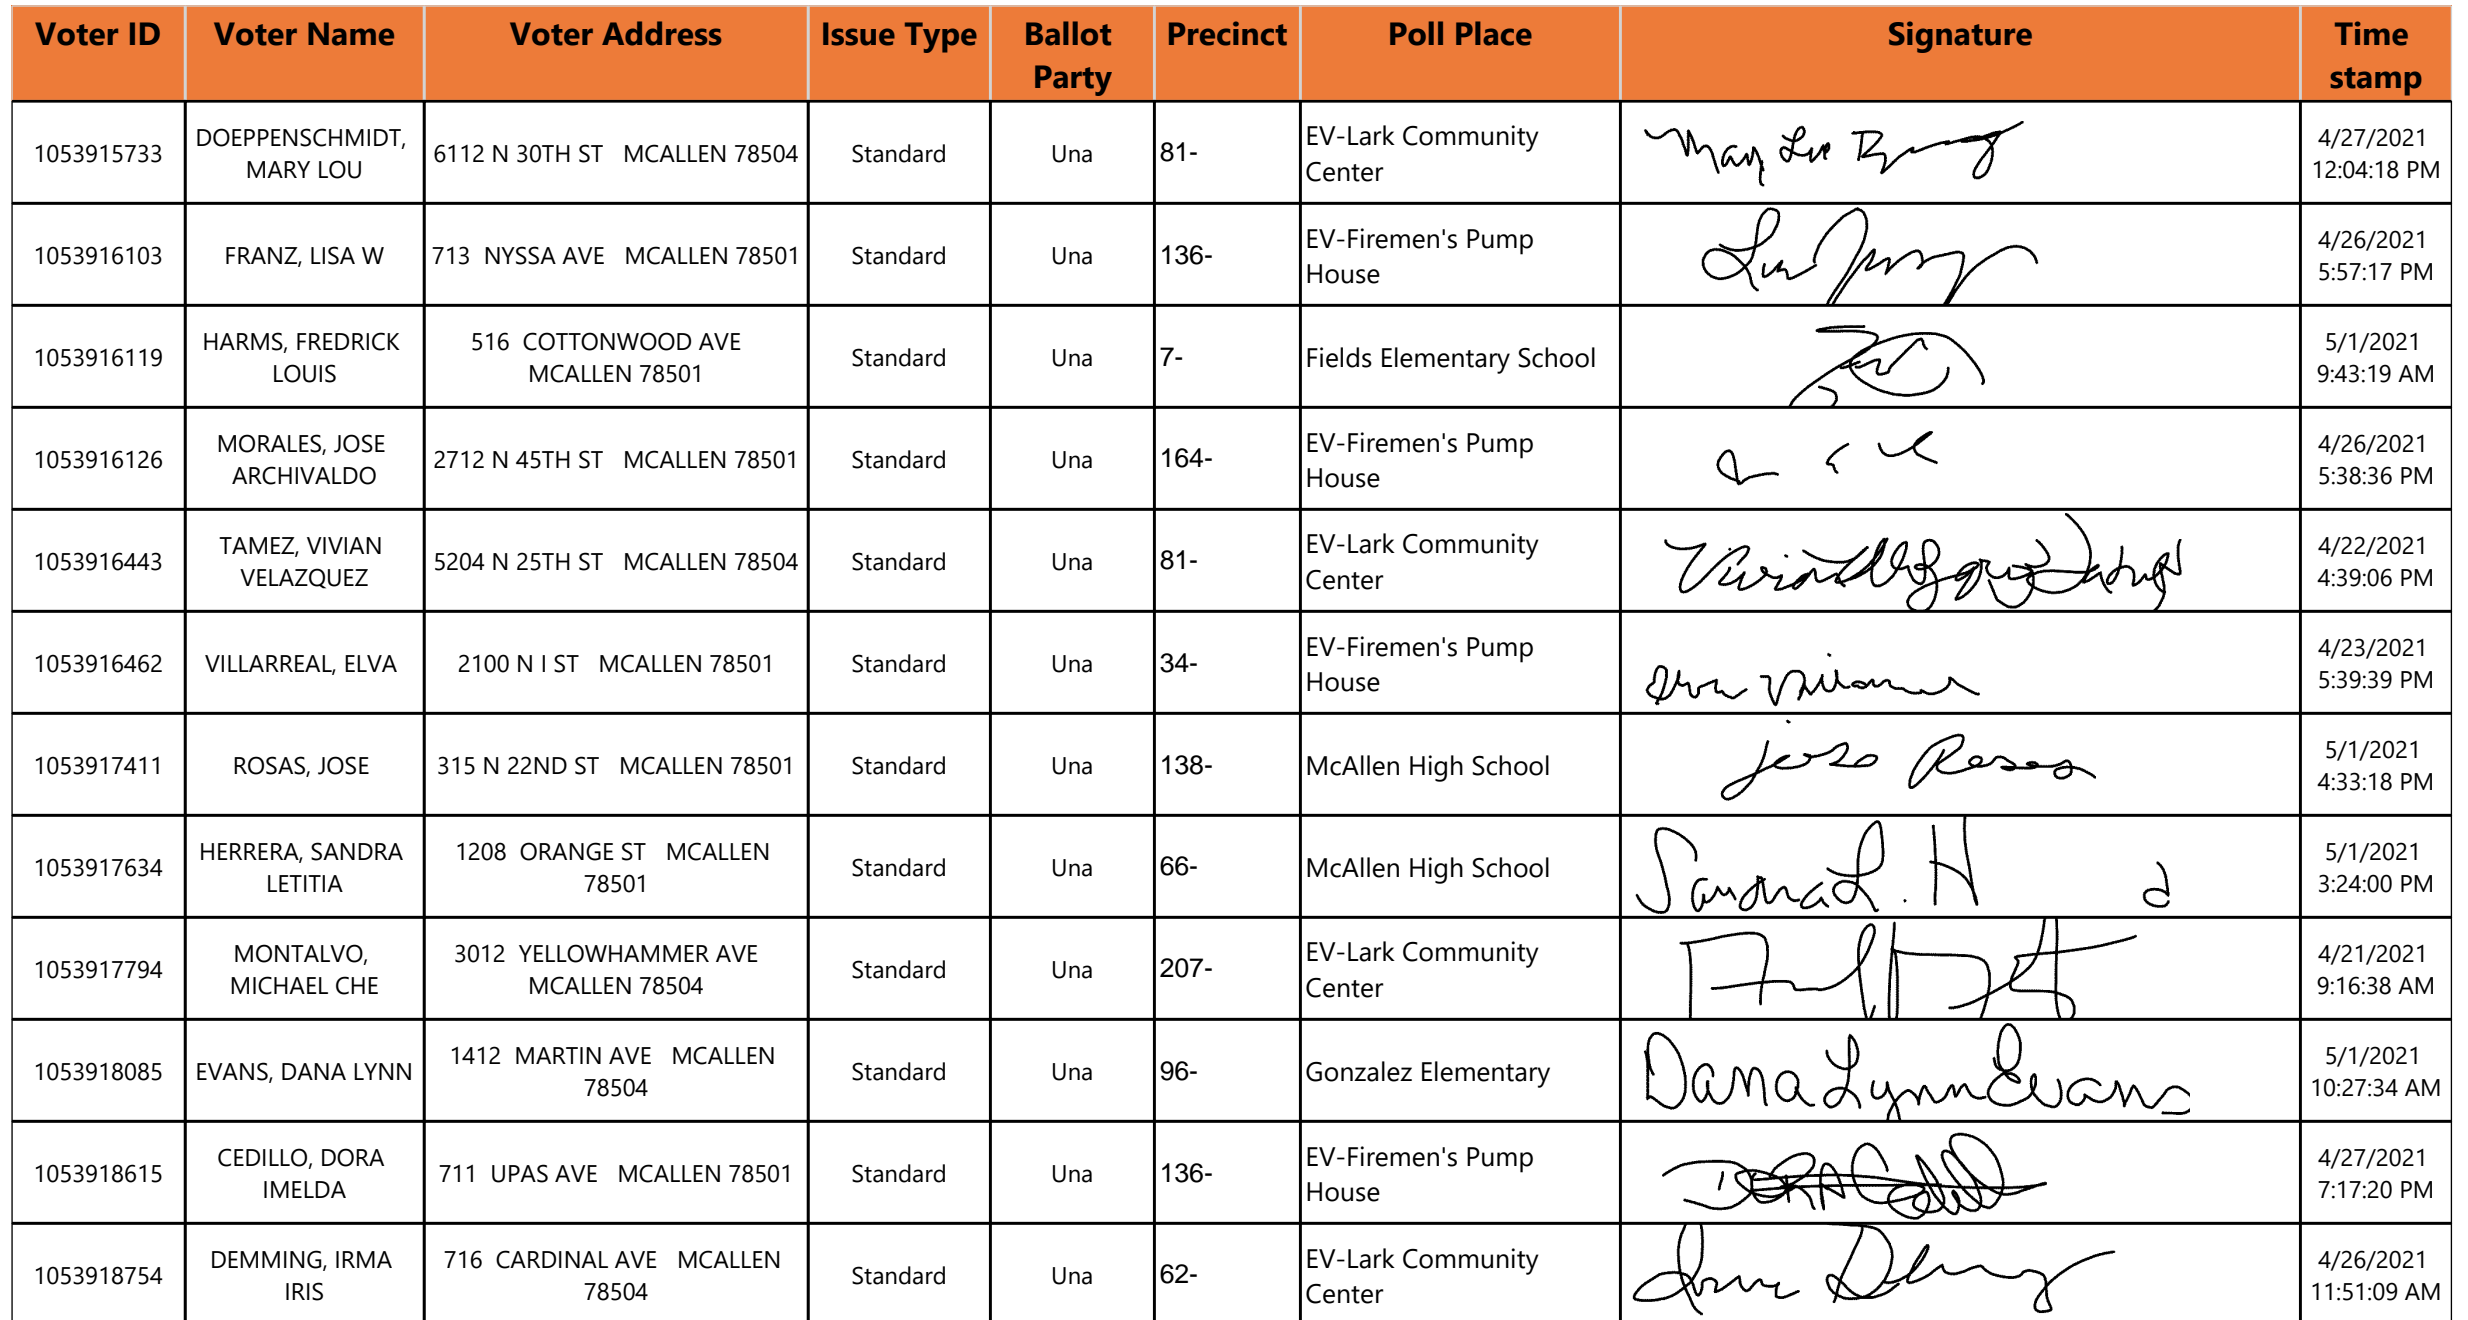 Voter ID Voter Name Voter Address Issue Type Ballot Party Precinct Poll Place Signature Time stamp
1053915733 DOEPPENSCHMIDT, MARY LOU 6112 N 30TH ST MCALLEN 78504 Standard Una 81- EV-Lark Community Center 4/27/2021 12:04:18 PM
1053916103 FRANZ, LISA W 713 NYSSA AVE MCALLEN 78501 Standard Una 136- EV-Firemen's Pump House 4/26/2021 5:57:17 PM
1053916119 HARMS, FREDRICK LOUIS 516 COTTONWOOD AVE MCALLEN 78501 Standard Una 7- Fields Elementary School 5/1/2021 9:43:19 AM
1053916126 MORALES, JOSE ARCHIVALDO 2712 N 45TH ST MCALLEN 78501 Standard Una 164- EV-Firemen's Pump House 4/26/2021 5:38:36 PM
1053916443 TAMEZ, VIVIAN VELAZQUEZ 5204 N 25TH ST MCALLEN 78504 Standard Una 81- EV-Lark Community Center 4/22/2021 4:39:06 PM
1053916462 VILLARREAL, ELVA 2100 N I ST MCALLEN 78501 Standard Una 34- EV-Firemen's Pump House 4/23/2021 5:39:39 PM
1053917411 ROSAS, JOSE 315 N 22ND ST MCALLEN 78501 Standard Una 138- McAllen High School Jose Rosas 5/1/2021 4:33:18 PM
1053917634 HERRERA, SANDRA LETITIA 1208 ORANGE ST MCALLEN 78501 Standard Una 66- McAllen High School Sandra L. H 5/1/2021 3:24:00 PM
1053917794 MONTALVO, MICHAEL CHE 3012 YELLOWHAMMER AVE MCALLEN 78504 Standard Una 207- EV-Lark Community Center 4/21/2021 9:16:38 AM
1053918085 EVANS, DANA LYNN 1412 MARTIN AVE MCALLEN 78504 Standard Una 96- Gonzalez Elementary Dana Lynn Evans 5/1/2021 10:27:34 AM
1053918615 CEDILLO, DORA IMELDA 711 UPAS AVE MCALLEN 78501 Standard Una 136- EV-Firemen's Pump House 4/27/2021 7:17:20 PM
1053918754 DEMMING, IRMA IRIS 716 CARDINAL AVE MCALLEN 78504 Standard Una 62- EV-Lark Community Center 4/26/2021 11:51:09 AM